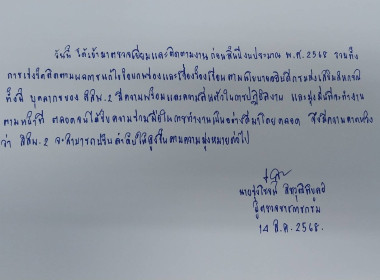 วันนี้ ได้เข้ามาตรวจเยี่ยมและติดตามงาน ก่อนสิ้นปีงบประมาณ พ.ศ. 2568 รวมทั้ง
การเร่งรัดติดตามผลการแก้ไขข้อบกพร่องและเรื่องร้องเรียน ตามนโยบายอธิบดีกรมส่งเสริมสหกรณ์
ทั้งนี้ บุคลากรของ สสพ.2 มีความพร้อมและความตื่นตัวในการปฏิบัติงาน และมุ่งมั่นที่จะทำงาน
ตามหน้าที่ ตลอดจนได้รับความร่วมมือในการทำงานเป็นอย่างดีมาโดยตลอด จึงมีความคาดหวัง
ว่า สสพ.2 จะสามารถปรับลำดับให้สูงขึ้นตามความมุ่งหมายต่อไป
ผู้ตรวจราชการกรม
14 ส.ค. 2568.